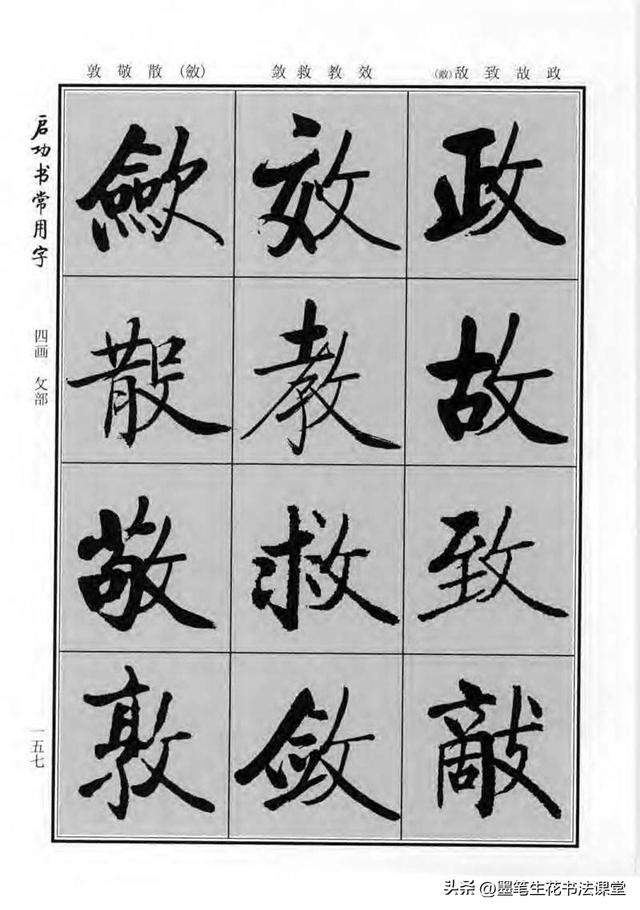 政故致敌(敵)
效教救敛
(斂)散敬敦
政故致敵
效教救敛
斂散敬敦
启功书常用字
四画 攵部
一五七
头条 @墨笔生花书法课堂